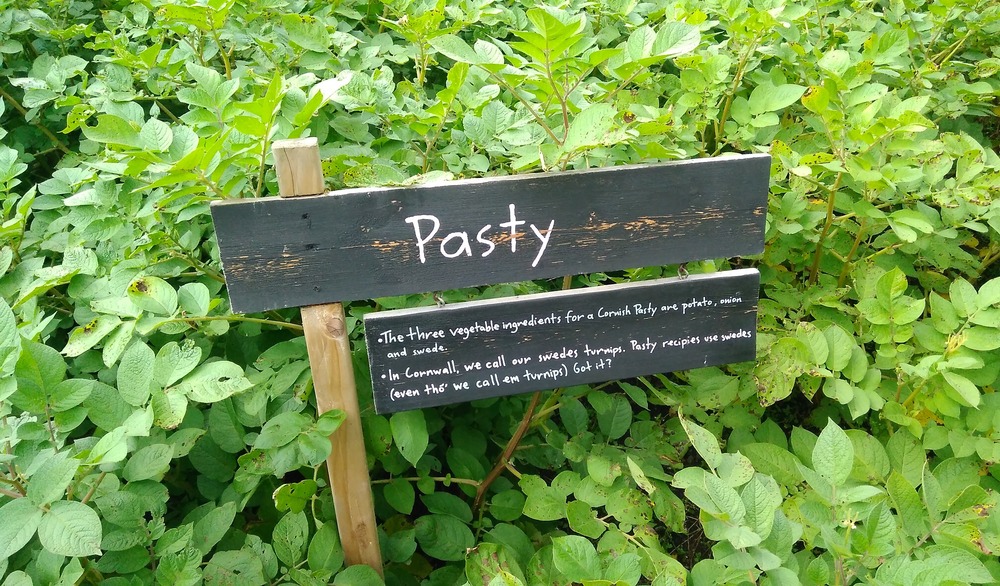 Pasty
•The three vegetable ingredients for a Cornish Pasty are potato, onion
and swede.
•In Cornwall, we call our swedes turnips. Pasty recipies use swedes
(even tho' we call em turnips) Got it?